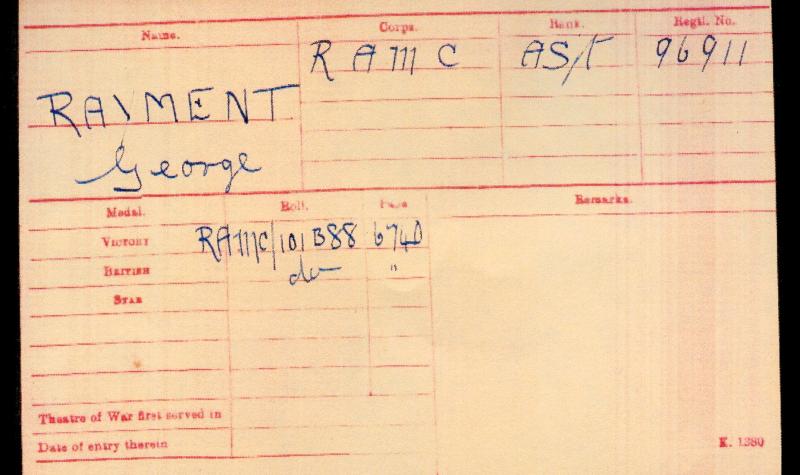 Name. Corps. Rank. Regtl. No.
R A M C A S/T 96911
RAYMENT
George
Medal. Roll. Page Remarks.
VICTORY RAMC/101 B88 6740
BRITISH do "
STAR
Theatre of War first served in
Date of entry therein
K. 1380